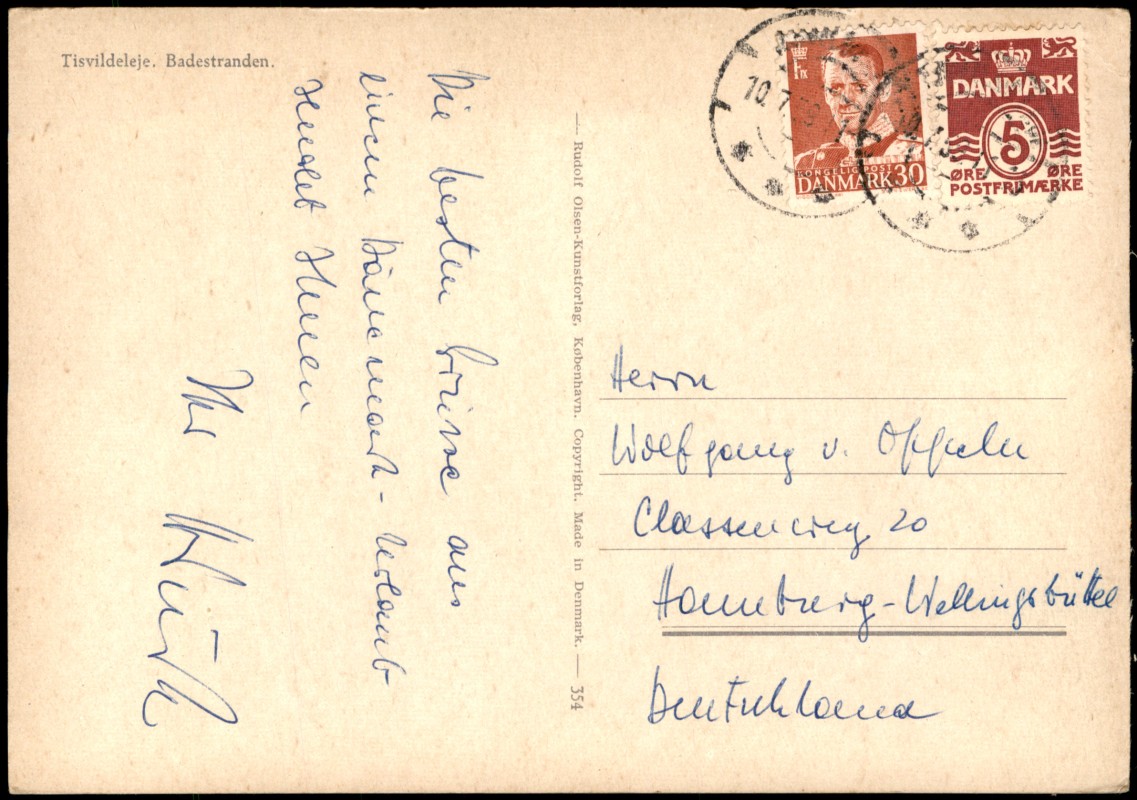 Tisvildeleje. Badestranden.
Die besten Grüsse aus
einem Dänemark-Urlaub
sendet Ihnen
Ihr
— Rudolf Olsen-Kunstforlag, København. Copyright. Made in Denmark. — 354
10.7.
KONGELIG POST
DANMARK 30
DANMARK
5
ØRE ØRE
POSTFRIMÆRKE
Herrn
Wolfgang v. Oppeln
Classenweg 20
Hamburg-Wellingsbüttel
Deutschland